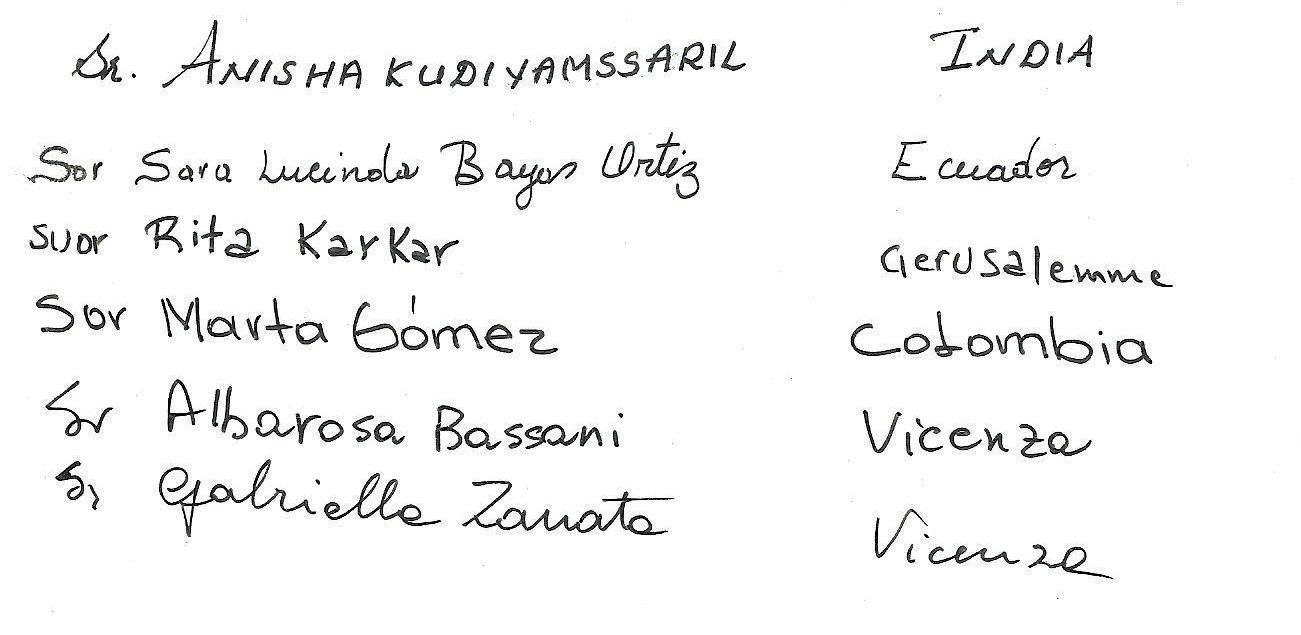 Sr. ANISHA KUDIYAMSSARIL INDIA
Sor Sara Lucinda Bayas Ortiz Ecuador
suor Rita Karkar Gerusalemme
Sor Marta Gómez Colombia
Sr Albarosa Bassani Vicenza
Sr Gabriella Zanata Vicenza